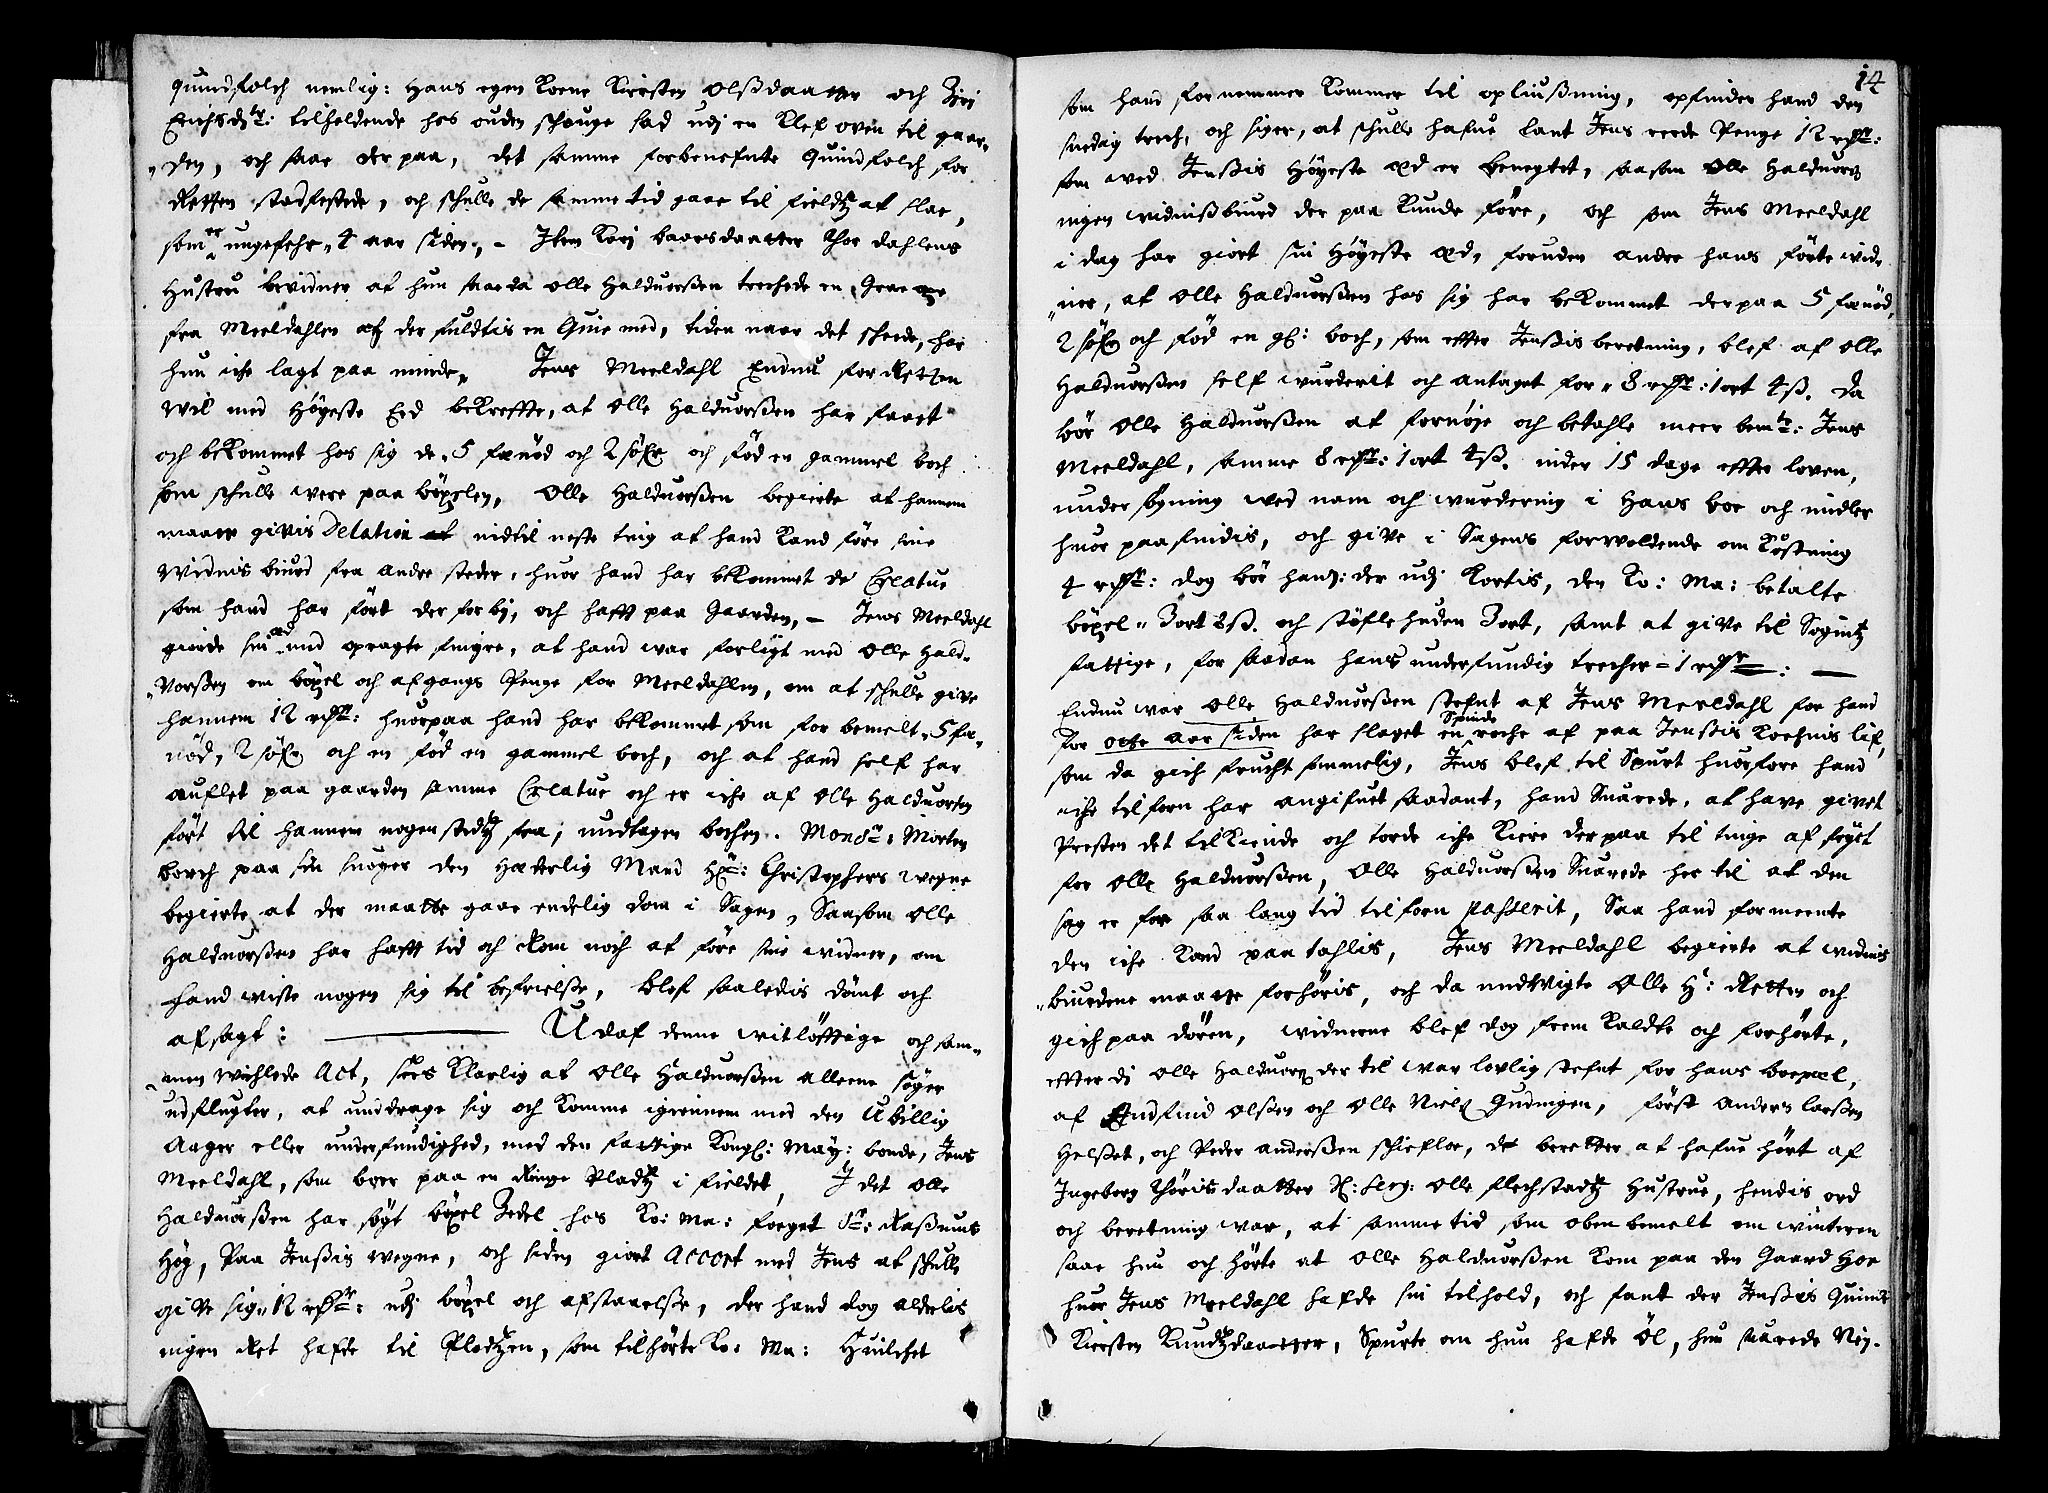 quindfolch nemlig: Hans egen Koene Kiersten Olßdaatter och Ziri
Erichsdtr: tilholdende hos ouden schouge sad udj en Klef oven til gaar¬
den, och saae der paa, det samme forbenefnte Quindfolch for
Retten stadfestede, och schulle de samme tid gaae til fieldtz at slae,
som er ungefehr 4 aar siden, - Item Kari baarsdaatter Thoe dahlens
Hustru bevidner at hun saae da Olle Halduorßen trechede en Grae
fra Meeldahlen och der fuldtis en Quie med, tiden naar det scheede, har
hun iche lagt paa minde, Jens Meeldahl Endnu for Retten
wil med Høyeste Eed bekreffte, at Olle Halduorßen har faaet
och bekommet hos sig de 5 fænød och 2 söfr och fød en gammel boch
som schulle were paa böxlen, Olle Halduorßen begierte at hannem
maatte givis Delation indtil neste ting at hand kand före sine
Widnis biurd fra andre steder, huor hand har bekommet de Creatur
som hand har fört der forbj, och hafft paa Gaarden, - Jens Meeldahl
giorde sin æd med opragte fingre, at hand war forligt med Olle Hald¬
vorßen om böxel och afgangs Penge for Meeldahlen, om at schulle give
hannem 12 rdr: huorpaa hand har bekommet som for bemelt 5 fæ¬
nöd, 2 söfr och en fød en gammel boch, och at hand self har
auflet paa gaarden samme Creatur och er iche af Olle Halduorsen
fört til hannem nogenstedtz fra, undtagen bochen. Monsr: Morten
borch paa sin suoger den Hæderlig Mand Hr: Christophers wegne
begierte at der maatte gaae endelig dom i Sagen, Saasom Olle
Halduorßen har hafft tid och Rom noch at före sine widner, om
hand wiste nogen sig til befrielße, blef saaledis dömt och
afsagt: Udaf denne witlöfftige och sam¬
men wichlede Act, sees Klarlig at Olle Halduorßen alleene söger
udflugter, at unddrage sig och Komme igiennem med den Ubillig
Aager eller underfundighed, med den fattige Kongl: May: bonde, Jens
Meeldahl, som boer paa en Ringe Pladtz i fieldet, J det Olle
Halduorßen har søgt böxel Zedel hos Ko: Ma: foeget Sr: Raßmus
Høy, Paa Jenßis wegne, och siden giort Accort med Jens at schulle
give sig 12 rdr: udj böxel och afstaaelße, der hand dog alderlis
ingen Ret hafde til Pladtzen, som tilhörte Ko: Ma: Huilchet
14
som hand fornemmer kommer til opliußning, opfinder hand den
suedig trech, och siger, at schulle hafue lant Jens reede Penge 12 rdr:
som wed Jenßis Høyeste æd er benegtet, saasom Olle Halduors
ingen widnißbiurd der paa kunde före, och som Jens Meeldahl
i dag har giort sin Høyeste æd, foruden andre hans förte wid¬
ner, at Olle Halduorßen hos sig har bekommet derpaa 5 fænöd,
2 söfr och fød en gl: boch, som effter Jenßis beretning, blef af Olle
Halduorßen self wurderit och antaget for 8 rdr: 1 ort 4ß. Da
bör Olle Halduorßen at fornöje och betahle meer bemte: Jens
Meeldahl, samme 8 rdr: 1 ort 4ß. inden 15 dage effter loven,
under söyning wed nam och wurdering i Hans boe och midler
huor paafindis, och give i Sagens forwoldende omkostning
4 rdr: dog bör hand: der udj kortis, den Ko: Ma: betalte
böxel 3 ort 8ß. och støfle huden 3 ort, samt at give til Sogintz
fattige, for saadan hans underfundig trecher - 1 rdr:
Endnu war Olle Halduorßen stefnt af Jens Meeldahl for hand
for otte aar siden har slaget en Spinde roche af paa Jenßis koehnis lif,
som da gich fruchtsommelig, Jens blef til Spurt huorfore hand
iche tilforn har angifuet saadant, hand Suarede, at have givet
Presten det tilkiende och torde iche kiere derpaa til tinge af frÿct
for Olle Halduorßen, Olle Halduorßen Suarede her til at den
sag er for saa lang tid tilforn passerit, Saa hand formeente
den iche kand paa tahlis, Jens Meeldahl begierte at widnis
biurdene maatte forhöris, och da undwigte Olle H: Retten och
gich paa dören, widnerne blef dog frem kaldte och forhörte,
effter di Olle Halduors der til war lovlig stefnt for hans boepæl,
af Endfind Olßen och Olle Niels Gudingen, först Anders larßen
Helßet, och Peder Anderßen schiefloe, de beretter at hafue hört af
Ingeborg Thörisdaatter Olle flechstadtz Hustrue, hendis ord
och beretning war, at samme tid som oben bemelt om winteren
saae hun och hörte at Olle Halduorßen kom paa den Gaard Hoe
huor Jens Meeldahl hafde sin tilhold, och fant der Jenßis Quinde
Kiersten Knudtzdaatter, Spurte om hun hafde Öl, hun suarede Ney.